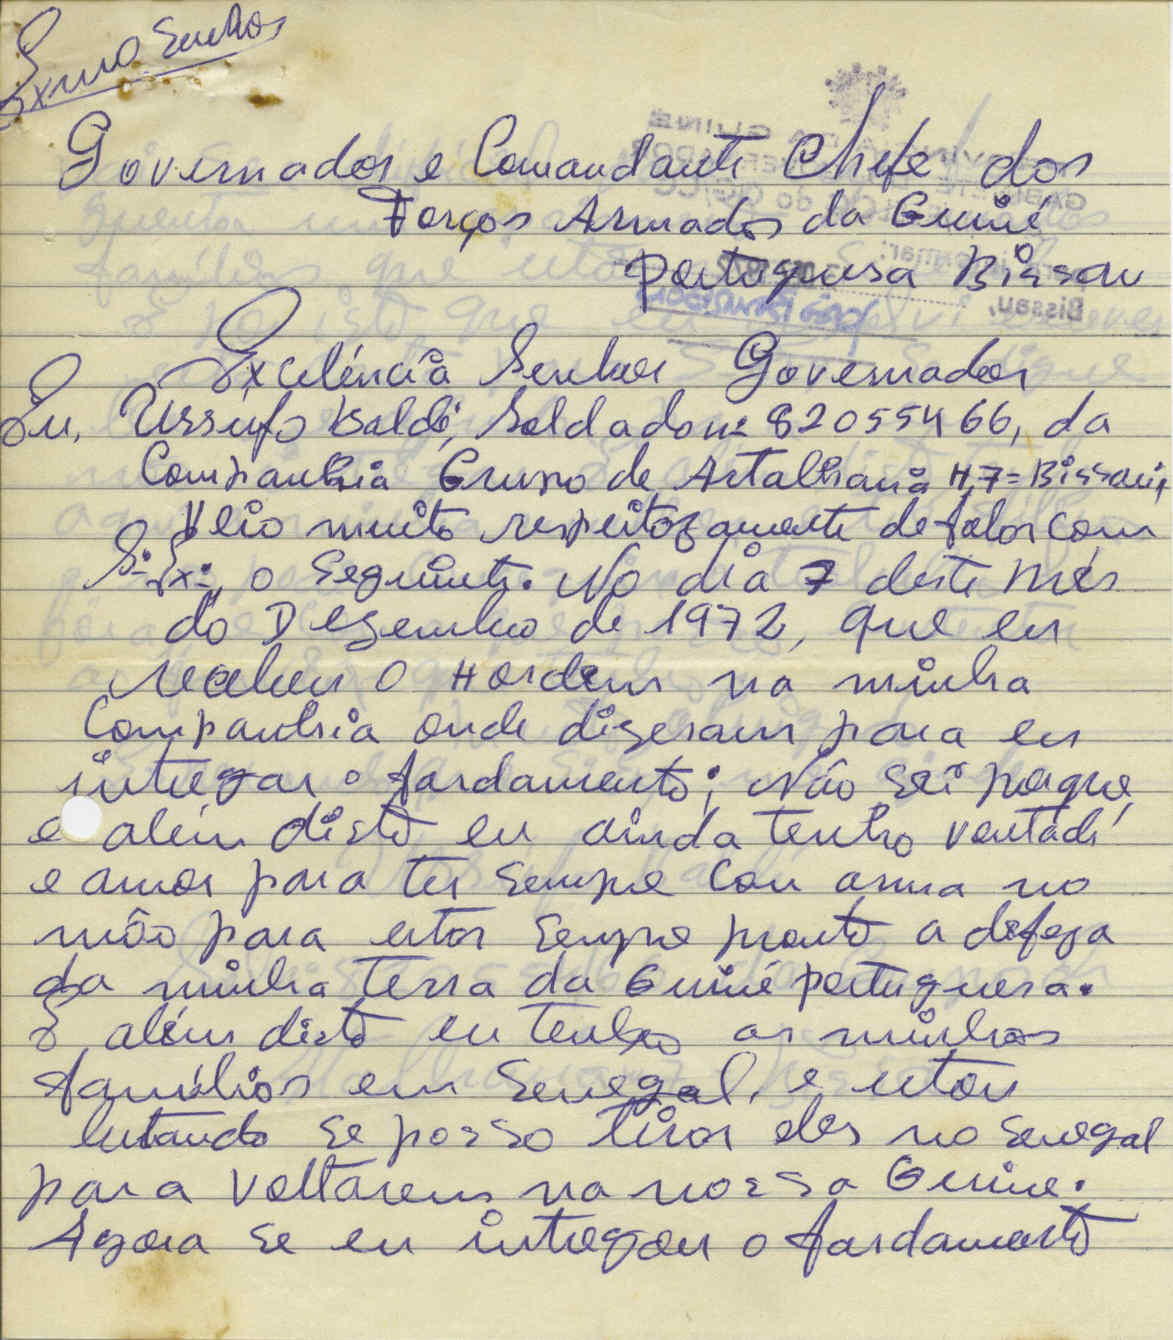 Exmo Senhor
Governador e Comandante Chefe dos
Forços Armados da Guiné
portuguesa Bissau
Excelência Senhor Governador
Eu, Ussufo Baldé, Soldado nº 82055466, da
Companhia Grupo de Artalharia Nº 7 = Bissau,
Veio muito respeitozamente de falar com
S. Ex: o Seguinte. No dia 7 deste mês
do Dezembro de 1972, que eu
recebeu o Hordem na minha
Companhia onde dizeram para eu
intregar o fardamento; Não sei porque,
e além disto eu ainda tenho vontadi
e amor para ter sempre con arma no
mão para estar sempre pronto a defeza
da minha terra da Guiné portuguesa.
E além disto eu tenho as minhas
famílios em Senegal, e estou
lutando se posso tirar eles no Senegal
para voltarem na nossa Guine.
Agora se eu intregou o fardamento